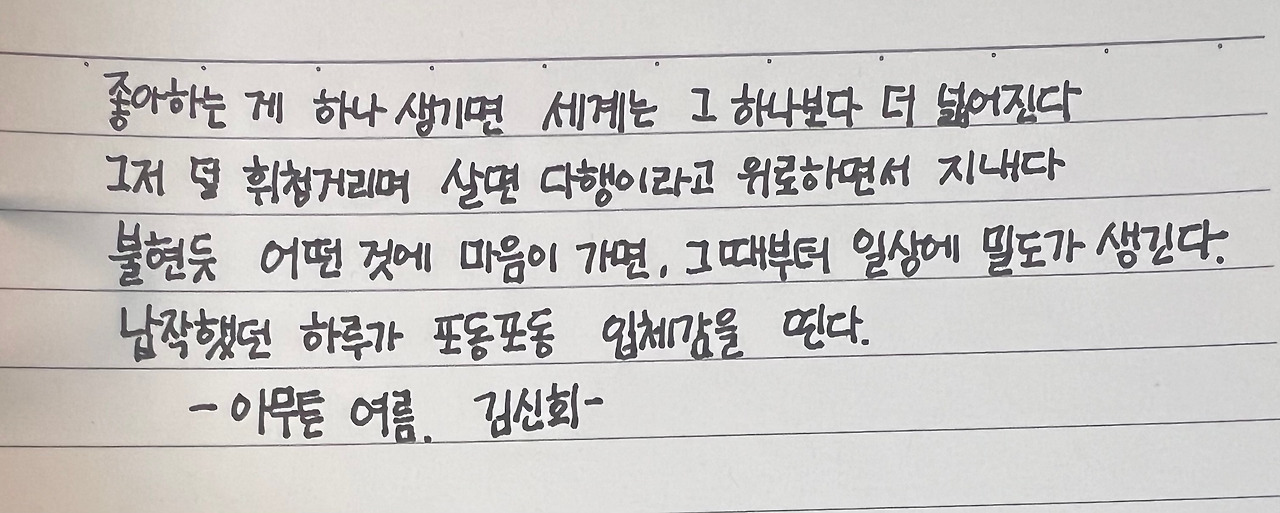 좋아하는 게 하나 생기면 세계는 그 하나보다 더 넓어진다
그저 덜 휘청거리며 살면 다행이라고 위로하면서 지내다
불현듯 어떤 것에 마음이 가면, 그때부터 일상에 밀도가 생긴다.
납작했던 하루가 포동포동 입체감을 띤다.
- 아무튼 여름. 김신회-